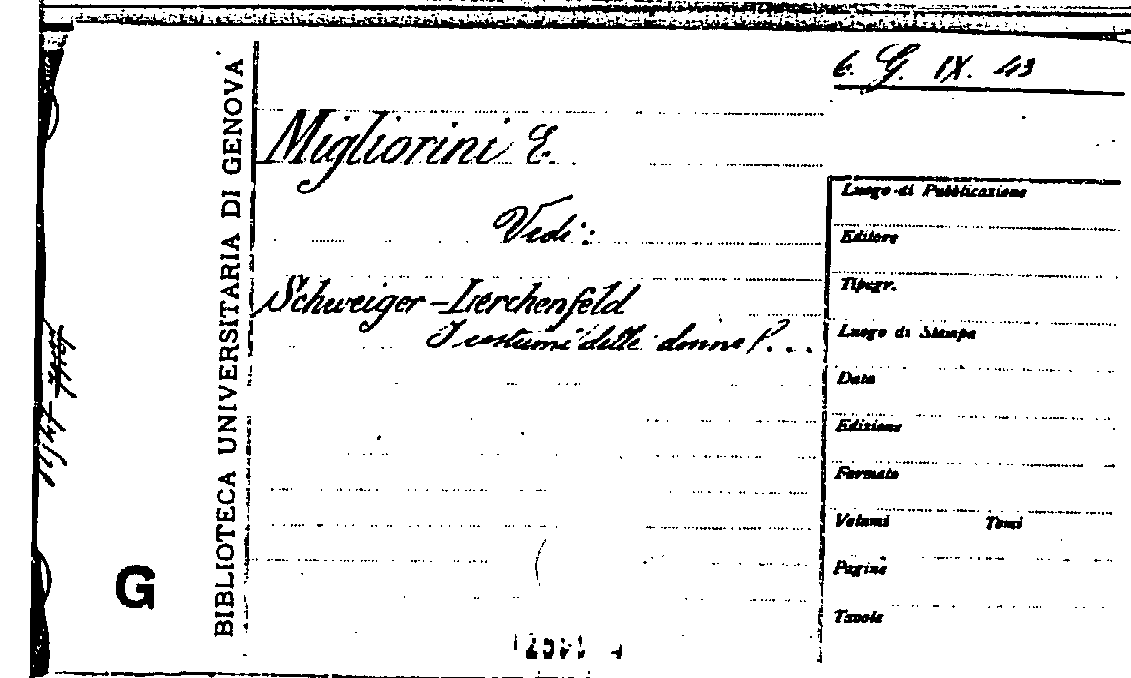 6. G. IX. 43
BIBLIOTECA UNIVERSITARIA DI GENOVA
Migliorini E.
Vedi:
Schweiger-Lerchenfeld
I costumi delle donne P...
Luogo di Pubblicazione
Editore
Tipogr.
Luogo di Stampa
Data
Edizione
Formato
Volumi Tomi
Pagine
Tavole
G